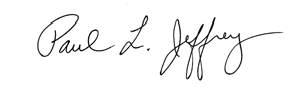 Paul L. Jeffrey